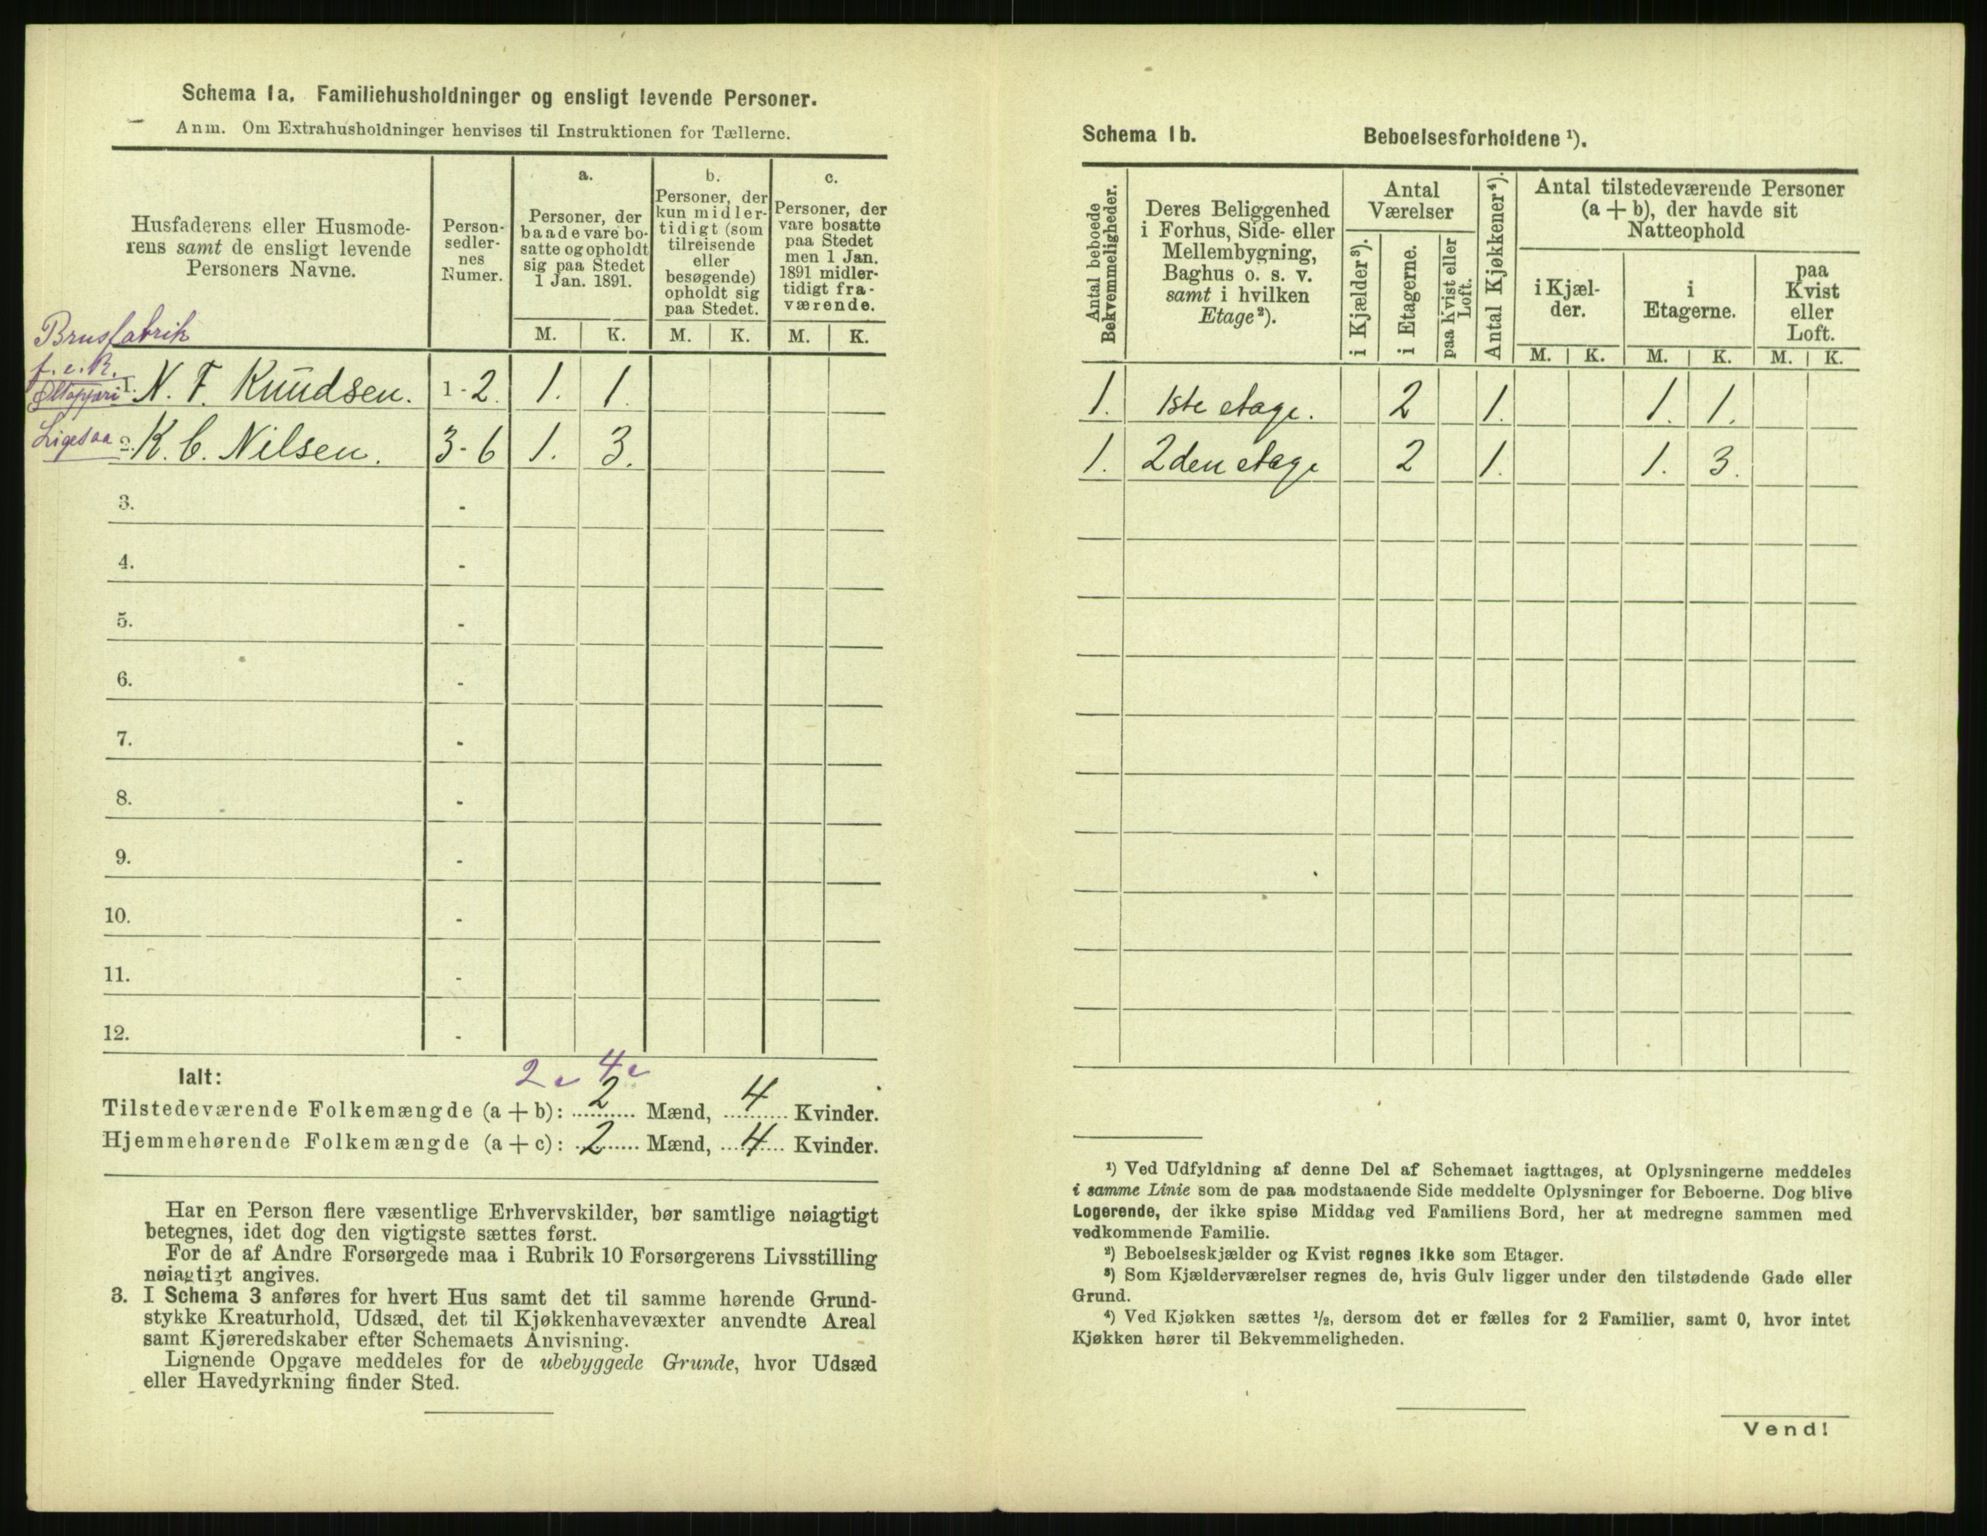 Schema 1a. Familiehusholdninger og ensligt levende Personer.
Anm. Om Extrahusholdninger henvises til Instruktionen for Tællerne.
Husfaderens eller Husmode-
rens samt de ensligt levende
Personers Navne.
Person-
sedler-
nes
Numer.
a.
Personer, der
baade vare bo-
satte og opholdt
sig paa Stedet
1 Jan. 1891.
b.
Personer, der
kun midler-
tidigt (som
tilreisende
eller
besøgende)
opholdt sig
paa Stedet.
c.
Personer, der
vare bosatte
paa Stedet
men 1 Jan.
1891 midler-
tidigt fra-
værende.
M. K. M. K. M. K.
Brusfabrik
f. e. R.
1. N. F. Knudsen. 1-2. 1. 1.
Ligesaa 2. K. C. Nilsen. 3-6 1. 3.
3. -
4. -
5. -
6. -
7. -
8. -
9. -
10. -
11. -
12. -
2 4
Ialt:
Tilstedeværende Folkemængde (a + b): 2 Mænd, 4 Kvinder.
Hjemmehørende Folkemængde (a + c): 2 Mænd, 4 Kvinder.
Har en Person flere væsentlige Erhvervskilder, bør samtlige nøiagtigt
betegnes, idet dog den vigtigste sættes først.
For de af Andre Forsørgede maa i Rubrik 10 Forsørgerens Livsstilling
nøiagtigt angives.
3. I Schema 3 anføres for hvert Hus samt det til samme hørende Grund-
stykke Kreaturhold, Udsæd, det til Kjøkkenhavevæxter anvendte Areal
samt Kjøreredskaber efter Schemaets Anvisning.
Lignende Opgave meddeles for de ubebyggede Grunde, hvor Udsæd
eller Havedyrkning finder Sted.
Schema 1b. Beboelsesforholdene ¹).
Antal beboede
Bekvemmeligheder.
Deres Beliggenhed
i Forhus, Side- eller
Mellembygning,
Baghus o. s. v.
samt i hvilken
Etage ²).
Antal
Værelser
i Kjælder ³).
i Etagerne.
paa Kvist eller
Loft.
Antal Kjøkkener ⁴).
Antal tilstedeværende Personer
(a + b), der havde sit
Natteophold
i Kjæl-
der.
i
Etagerne.
paa
Kvist
eller
Loft.
M. K. M. K. M. K.
1. 1ste etage. 2 1. 1. 1.
1. 2den etage 2 1. 1. 3.
¹) Ved Udfyldning af denne Del af Schemaet iagttages, at Oplysningerne meddeles
i samme Linie som de paa modstaaende Side meddelte Oplysninger for Beboerne. Dog blive
Logerende, der ikke spise Middag ved Familiens Bord, her at medregne sammen med
vedkommende Familie.
²) Beboelseskjælder og Kvist regnes ikke som Etager.
³) Som Kjælderværelser regnes de, hvis Gulv ligger under den tilstødende Gade eller
Grund.
⁴) Ved Kjøkken sættes ½, dersom det er fælles for 2 Familier, samt 0, hvor intet
Kjøkken hører til Bekvemmeligheden.
Vend!